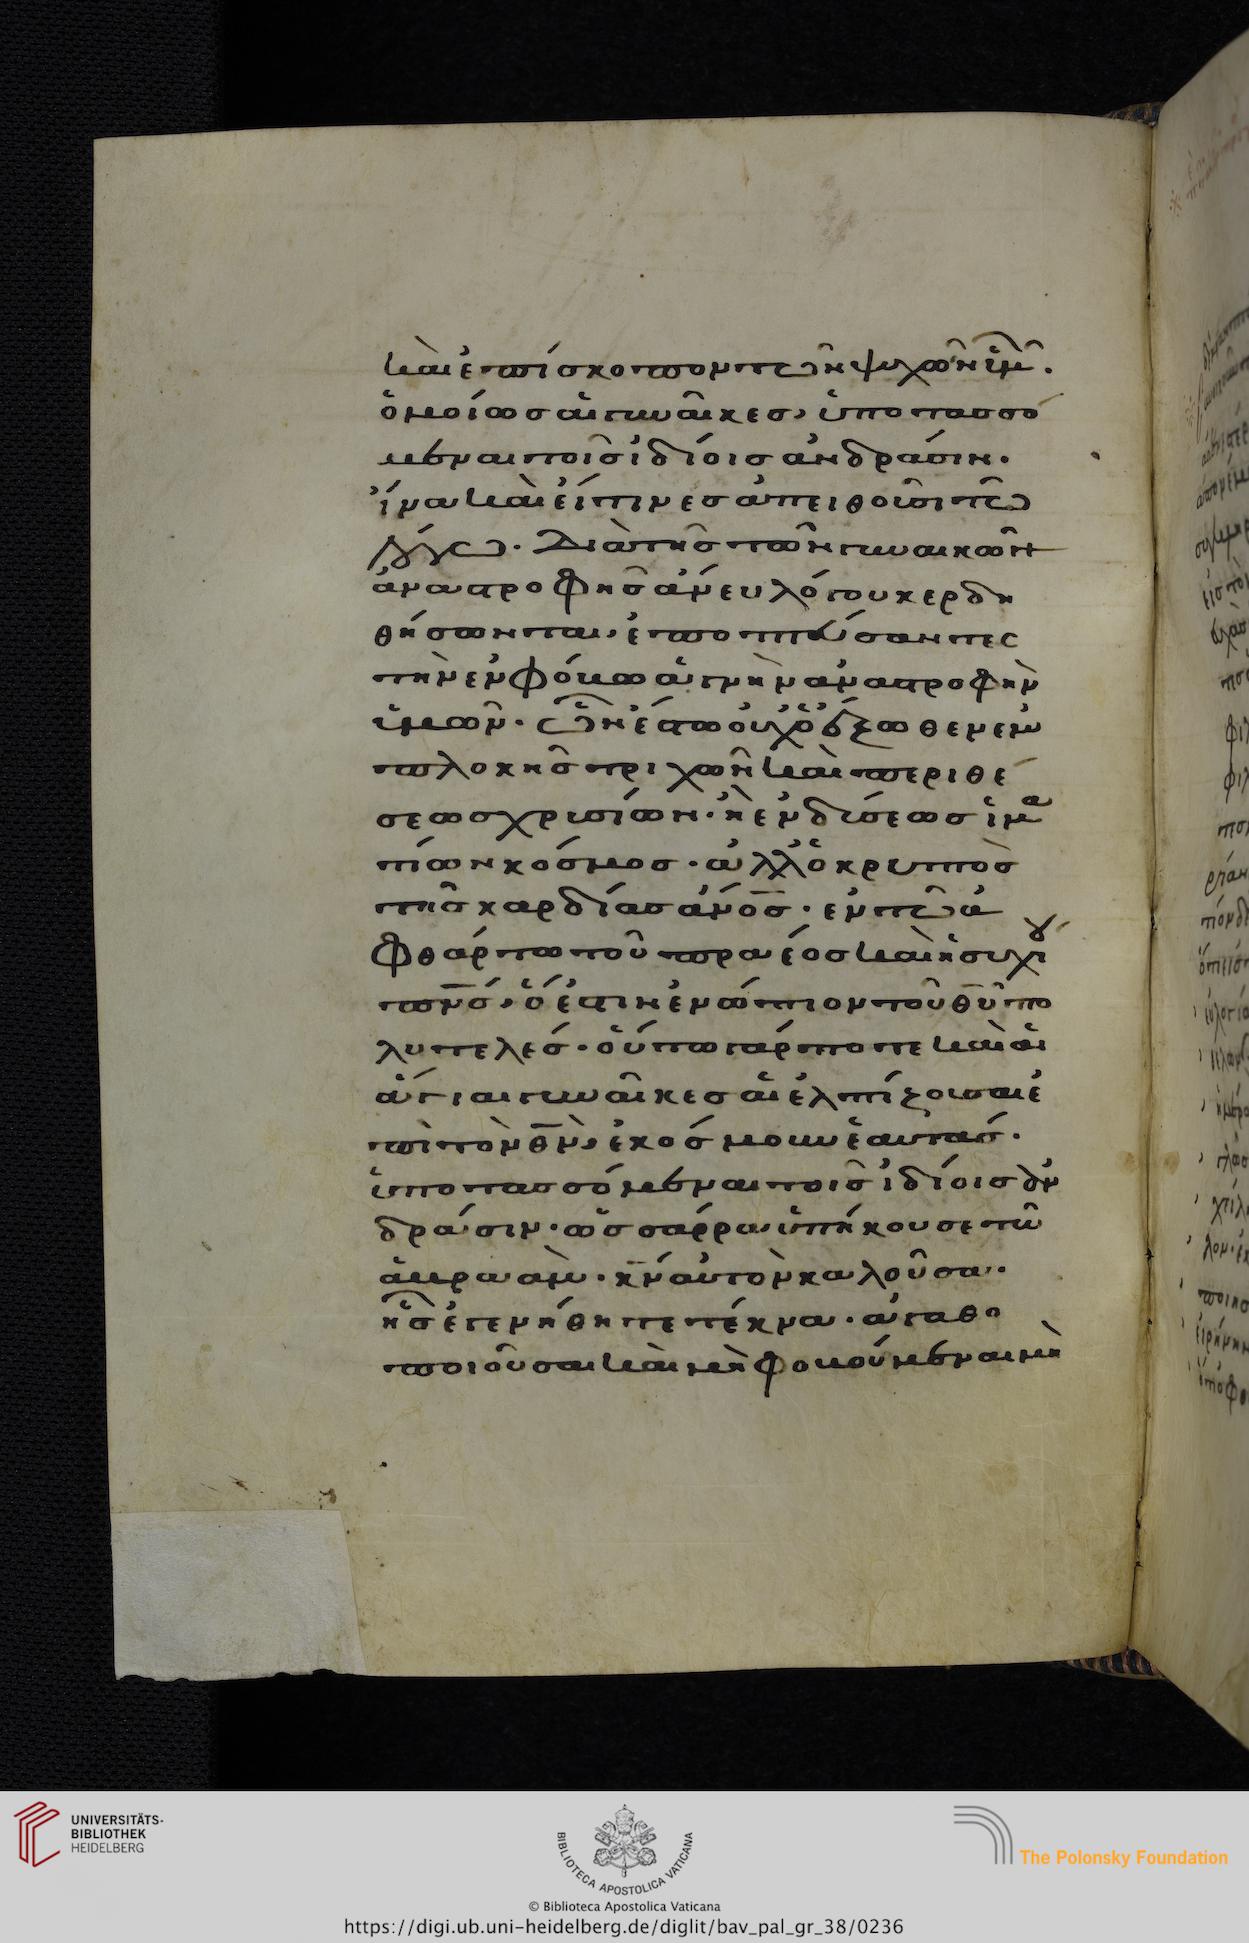 καὶ ἐπίσκοπον τῶν ψυχῶν ὑμῶ̂.
ὁμοίως αἱ γυναῖκες, ὑποτασσό
μεναι τοῖς ἰδίοις ἀνδράσιν.
ἵνα καὶ εἴ τινες ἀπειθοῦσι τῶ
λόγω. Διὰ τῆς τῶν γυναικῶν
ἀναστροφῆς ἄνευ λόγου κερδη
θήσωνται, ἐποπτεύσαντες
τὴν ἐν φόβω ἁγνὴν ἀναστροφὴν
ὑμῶν. ὧν ἔστω οὐχ ὁ ἔξωθεν ἐμ
πλοκῆς τριχῶν καὶ περιθέ
σεως χρυσίων. ἢ ἐνδύσεως ἱμα
τίων κόσμος. ἀλλ' ὁ κρυπτὸς
τῆς καρδίας ἄνος. ἐν τῶ ἀ
φθάρτω τοῦ πραέος καὶ ἡσυχίου
πνς, ὅ ἐστιν ἐνώπιον τοῦ θυ πο
λυτελές. οὕτω γάρ ποτε καὶ αἱ
ἅγιαι γυναῖκες αἱ ἐλπίζουσαι ἐ
πὶ τὸν θν, ἐκόσμουν ἑαυτάς.
ὑποτασσόμεναι τοῖς ἰδίοις ἀν
δράσιν. ὡς σάρρα ὑπήκουσε τῶ
ἀβραάμ. κν αὐτὸν καλοῦσα.
ἧς ἐγενήθητε τέκνα. ἀγαθο
ποιοῦσαι καὶ μὴ φοβούμεναι μη
UNIVERSITÄTS-
BIBLIOTHEK
HEIDELBERG
BIBLIOTECA APOSTOLICA VATICANA
The Polonsky Foundation
© Biblioteca Apostolica Vaticana
https://digi.ub.uni-heidelberg.de/diglit/bav_pal_gr_38/0236